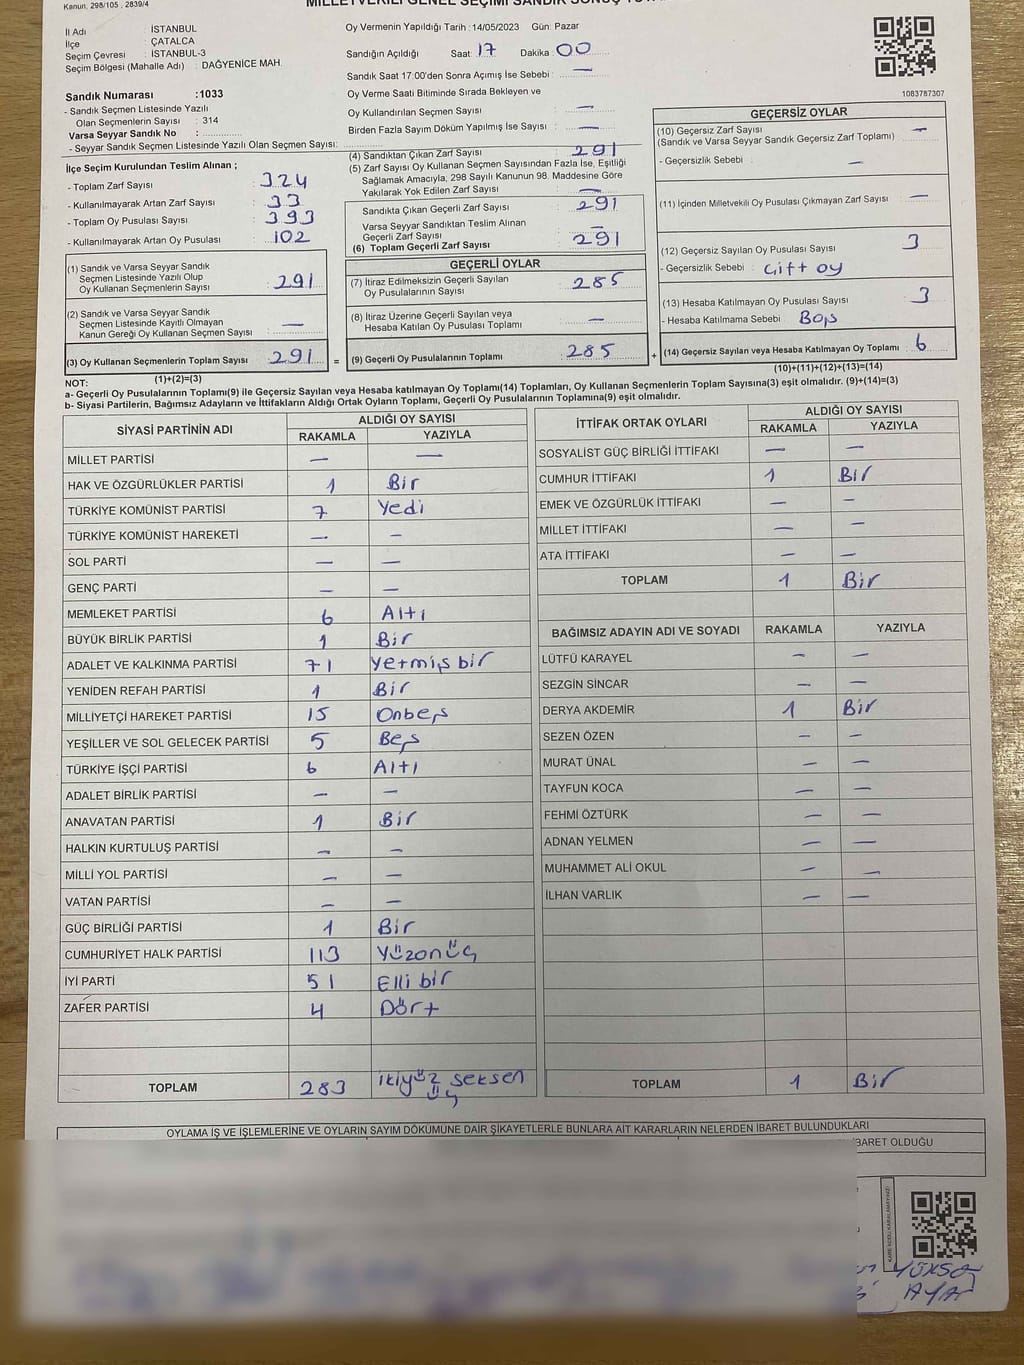 Kanun, 298/105 , 2839/4
İl Adı : İSTANBUL
İlçe : ÇATALCA
Seçim Çevresi : İSTANBUL-3
Seçim Bölgesi (Mahalle Adı) : DAĞYENİCE MAH.
Sandık Numarası :1033
- Sandık Seçmen Listesinde Yazılı
Olan Seçmenlerin Sayısı : 314
Varsa Seyyar Sandık No :
- Seyyar Sandık Seçmen Listesinde Yazılı Olan Seçmen Sayısı:
Oy Vermenin Yapıldığı Tarih : 14/05/2023 Gün: Pazar
Sandığın Açıldığı Saat: 17 Dakika: 00
Sandık Saat 17:00'den Sonra Açımış İse Sebebi : —
Oy Verme Saati Bitiminde Sırada Bekleyen ve
Oy Kullandırılan Seçmen Sayısı : —
Birden Fazla Sayım Döküm Yapılmış İse Sayısı : —
1083787307
İlçe Seçim Kurulundan Teslim Alınan ;
- Toplam Zarf Sayısı : 324
- Kullanılmayarak Artan Zarf Sayısı : 33
- Toplam Oy Pusulası Sayısı : 393
- Kullanılmayarak Artan Oy Pusulası : 102
(1) Sandık ve Varsa Seyyar Sandık
Seçmen Listesinde Yazılı Olup
Oy Kullanan Seçmenlerin Sayısı : 291
(2) Sandık ve Varsa Seyyar Sandık
Seçmen Listesinde Kayıtlı Olmayan
Kanun Gereği Oy Kullanan Seçmen Sayısı : —
(3) Oy Kullanan Seçmenlerin Toplam Sayısı : 291 =
(1)+(2)=(3)
(4) Sandıktan Çıkan Zarf Sayısı : 291
(5) Zarf Sayısı Oy Kullanan Seçmen Sayısından Fazla İse, Eşitliği
Sağlamak Amacıyla; 298 Sayılı Kanunun 98. Maddesine Göre
Yakılarak Yok Edilen Zarf Sayısı : —
Sandıkta Çıkan Geçerli Zarf Sayısı : 291
Varsa Seyyar Sandıktan Teslim Alınan
Geçerli Zarf Sayısı : —
(6) Toplam Geçerli Zarf Sayısı : 291
GEÇERLİ OYLAR
(7) İtiraz Edilmeksizin Geçerli Sayılan
Oy Pusulalarının Sayısı : 285
(8) İtiraz Üzerine Geçerli Sayılan veya
Hesaba Katılan Oy Pusulası Toplamı : —
(9) Geçerli Oy Pusulalarının Toplamı : 285 +
GEÇERSİZ OYLAR
(10) Geçersiz Zarf Sayısı : —
(Sandık ve Varsa Seyyar Sandık Geçersiz Zarf Toplamı)
- Geçersizlik Sebebi : —
(11) İçinden Milletvekili Oy Pusulası Çıkmayan Zarf Sayısı : —
(12) Geçersiz Sayılan Oy Pusulası Sayısı : 3
- Geçersizlik Sebebi : Çift oy
(13) Hesaba Katılmayan Oy Pusulası Sayısı : 3
- Hesaba Katılmama Sebebi : Boş
(14) Geçersiz Sayılan veya Hesaba Katılmayan Oy Toplamı : 6
(10)+(11)+(12)+(13)=(14)
NOT:
a- Geçerli Oy Pusulalarının Toplamı(9) ile Geçersiz Sayılan veya Hesaba katılmayan Oy Toplamı(14) Toplamları, Oy Kullanan Seçmenlerin Toplam Sayısına(3) eşit olmalıdır. (9)+(14)=(3)
b- Siyasi Partilerin, Bağımsız Adayların ve İttifakların Aldığı Ortak Oyların Toplamı, Geçerli Oy Pusulalarının Toplamına(9) eşit olmalıdır.
SİYASİ PARTİNİN ADI ALDIĞI OY SAYISI
RAKAMLA YAZIYLA
MİLLET PARTİSİ — —
HAK VE ÖZGÜRLÜKLER PARTİSİ 1 Bir
TÜRKİYE KOMÜNİST PARTİSİ 7 Yedi
TÜRKİYE KOMÜNİST HAREKETİ — —
SOL PARTİ — —
GENÇ PARTİ — —
MEMLEKET PARTİSİ 6 Altı
BÜYÜK BİRLİK PARTİSİ 1 Bir
ADALET VE KALKINMA PARTİSİ 71 Yetmiş bir
YENİDEN REFAH PARTİSİ 1 Bir
MİLLİYETÇİ HAREKET PARTİSİ 15 Onbeş
YEŞİLLER VE SOL GELECEK PARTİSİ 5 Beş
TÜRKİYE İŞÇİ PARTİSİ 6 Altı
ADALET BİRLİK PARTİSİ — —
ANAVATAN PARTİSİ 1 Bir
HALKIN KURTULUŞ PARTİSİ — —
MİLLİ YOL PARTİSİ — —
VATAN PARTİSİ — —
GÜÇ BİRLİĞİ PARTİSİ 1 Bir
CUMHURİYET HALK PARTİSİ 113 Yüzonüç
İYİ PARTİ 51 Elli bir
ZAFER PARTİSİ 4 Dört
TOPLAM 283 ikiyüz seksen
üç
İTTİFAK ORTAK OYLARI ALDIĞI OY SAYISI
RAKAMLA YAZIYLA
SOSYALİST GÜÇ BİRLİĞİ İTTİFAKI — —
CUMHUR İTTİFAKI 1 Bir
EMEK VE ÖZGÜRLÜK İTTİFAKI — —
MİLLET İTTİFAKI — —
ATA İTTİFAKI — —
TOPLAM 1 Bir
BAĞIMSIZ ADAYIN ADI VE SOYADI RAKAMLA YAZIYLA
LÜTFÜ KARAYEL — —
SEZGİN SİNCAR — —
DERYA AKDEMİR 1 Bir
SEZEN ÖZEN — —
MURAT ÜNAL — —
TAYFUN KOCA — —
FEHMİ ÖZTÜRK — —
ADNAN YELMEN — —
MUHAMMET ALİ OKUL — —
İLHAN VARLIK — —
TOPLAM 1 Bir
OYLAMA İŞ VE İŞLEMLERİNE VE OYLARIN SAYIM DÖKÜMÜNE DAİR ŞİKAYETLERLE BUNLARA AİT KARARLARIN NELERDEN İBARET BULUNDUKLARI
İBARET OLDUĞU